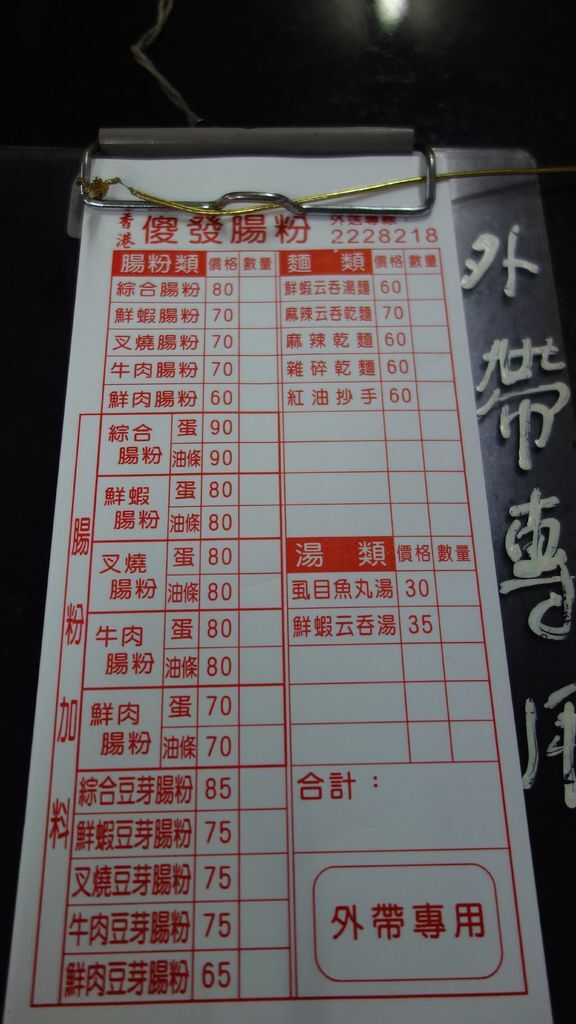 香港 傻發腸粉 外送專線：
2228218
腸粉類 價格 數量
綜合腸粉 80
鮮蝦腸粉 70
叉燒腸粉 70
牛肉腸粉 70
鮮肉腸粉 60
腸粉加料
綜合腸粉 蛋 90
油條 90
鮮蝦腸粉 蛋 80
油條 80
叉燒腸粉 蛋 80
油條 80
牛肉腸粉 蛋 80
油條 80
鮮肉腸粉 蛋 70
油條 70
綜合豆芽腸粉 85
鮮蝦豆芽腸粉 75
叉燒豆芽腸粉 75
牛肉豆芽腸粉 75
鮮肉豆芽腸粉 65
麵類 價格 數量
鮮蝦云吞湯麵 60
麻辣云吞乾麵 70
麻辣乾麵 60
雜碎乾麵 60
紅油抄手 60
湯類 價格 數量
虱目魚丸湯 30
鮮蝦云吞湯 35
合計：
外帶專用
外帶專用